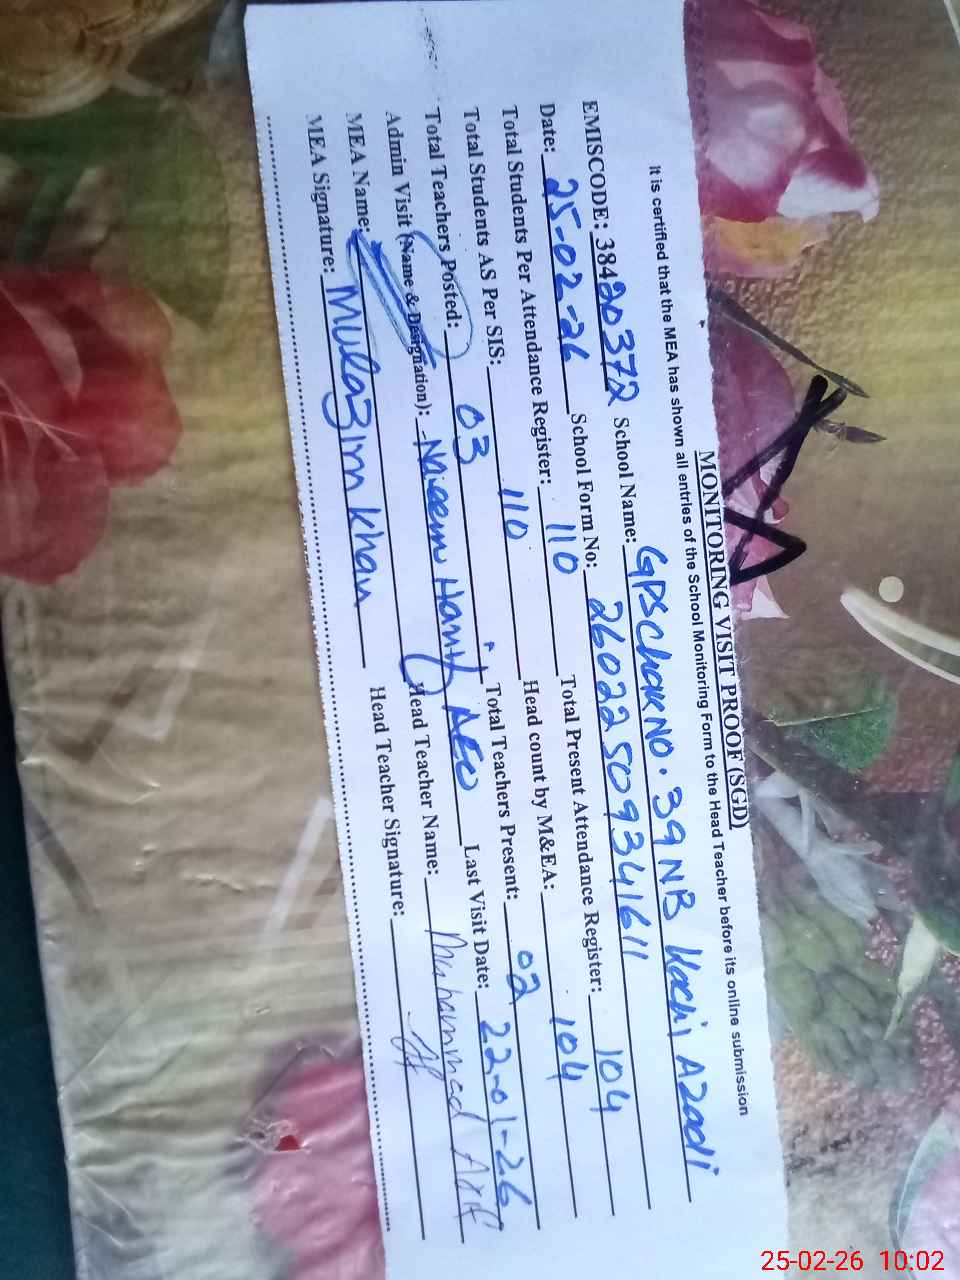 MONITORING VISIT PROOF (SGD)
It is certified that the MEA has shown all entries of the School Monitoring Form to the Head Teacher before its online submission
EMISCODE: 38420372 School Name: GPS Chak NO. 39 NB Kachi Azadi
Date: 25-02-26 School Form No: 26022509341611
Total Students Per Attendance Register: 110 Total Present Attendance Register: 104
Total Students AS Per SIS: 110 Head count by M&EA: 104
Total Teachers Posted: 03 Total Teachers Present: 02
Admin Visit (Name & Designation): Naeem AEO Last Visit Date: 22-01-26
MEA Name: Head Teacher Name: Muhammad Arif
MEA Signature: Mulazim Khan Head Teacher Signature:
25-02-26 10:02